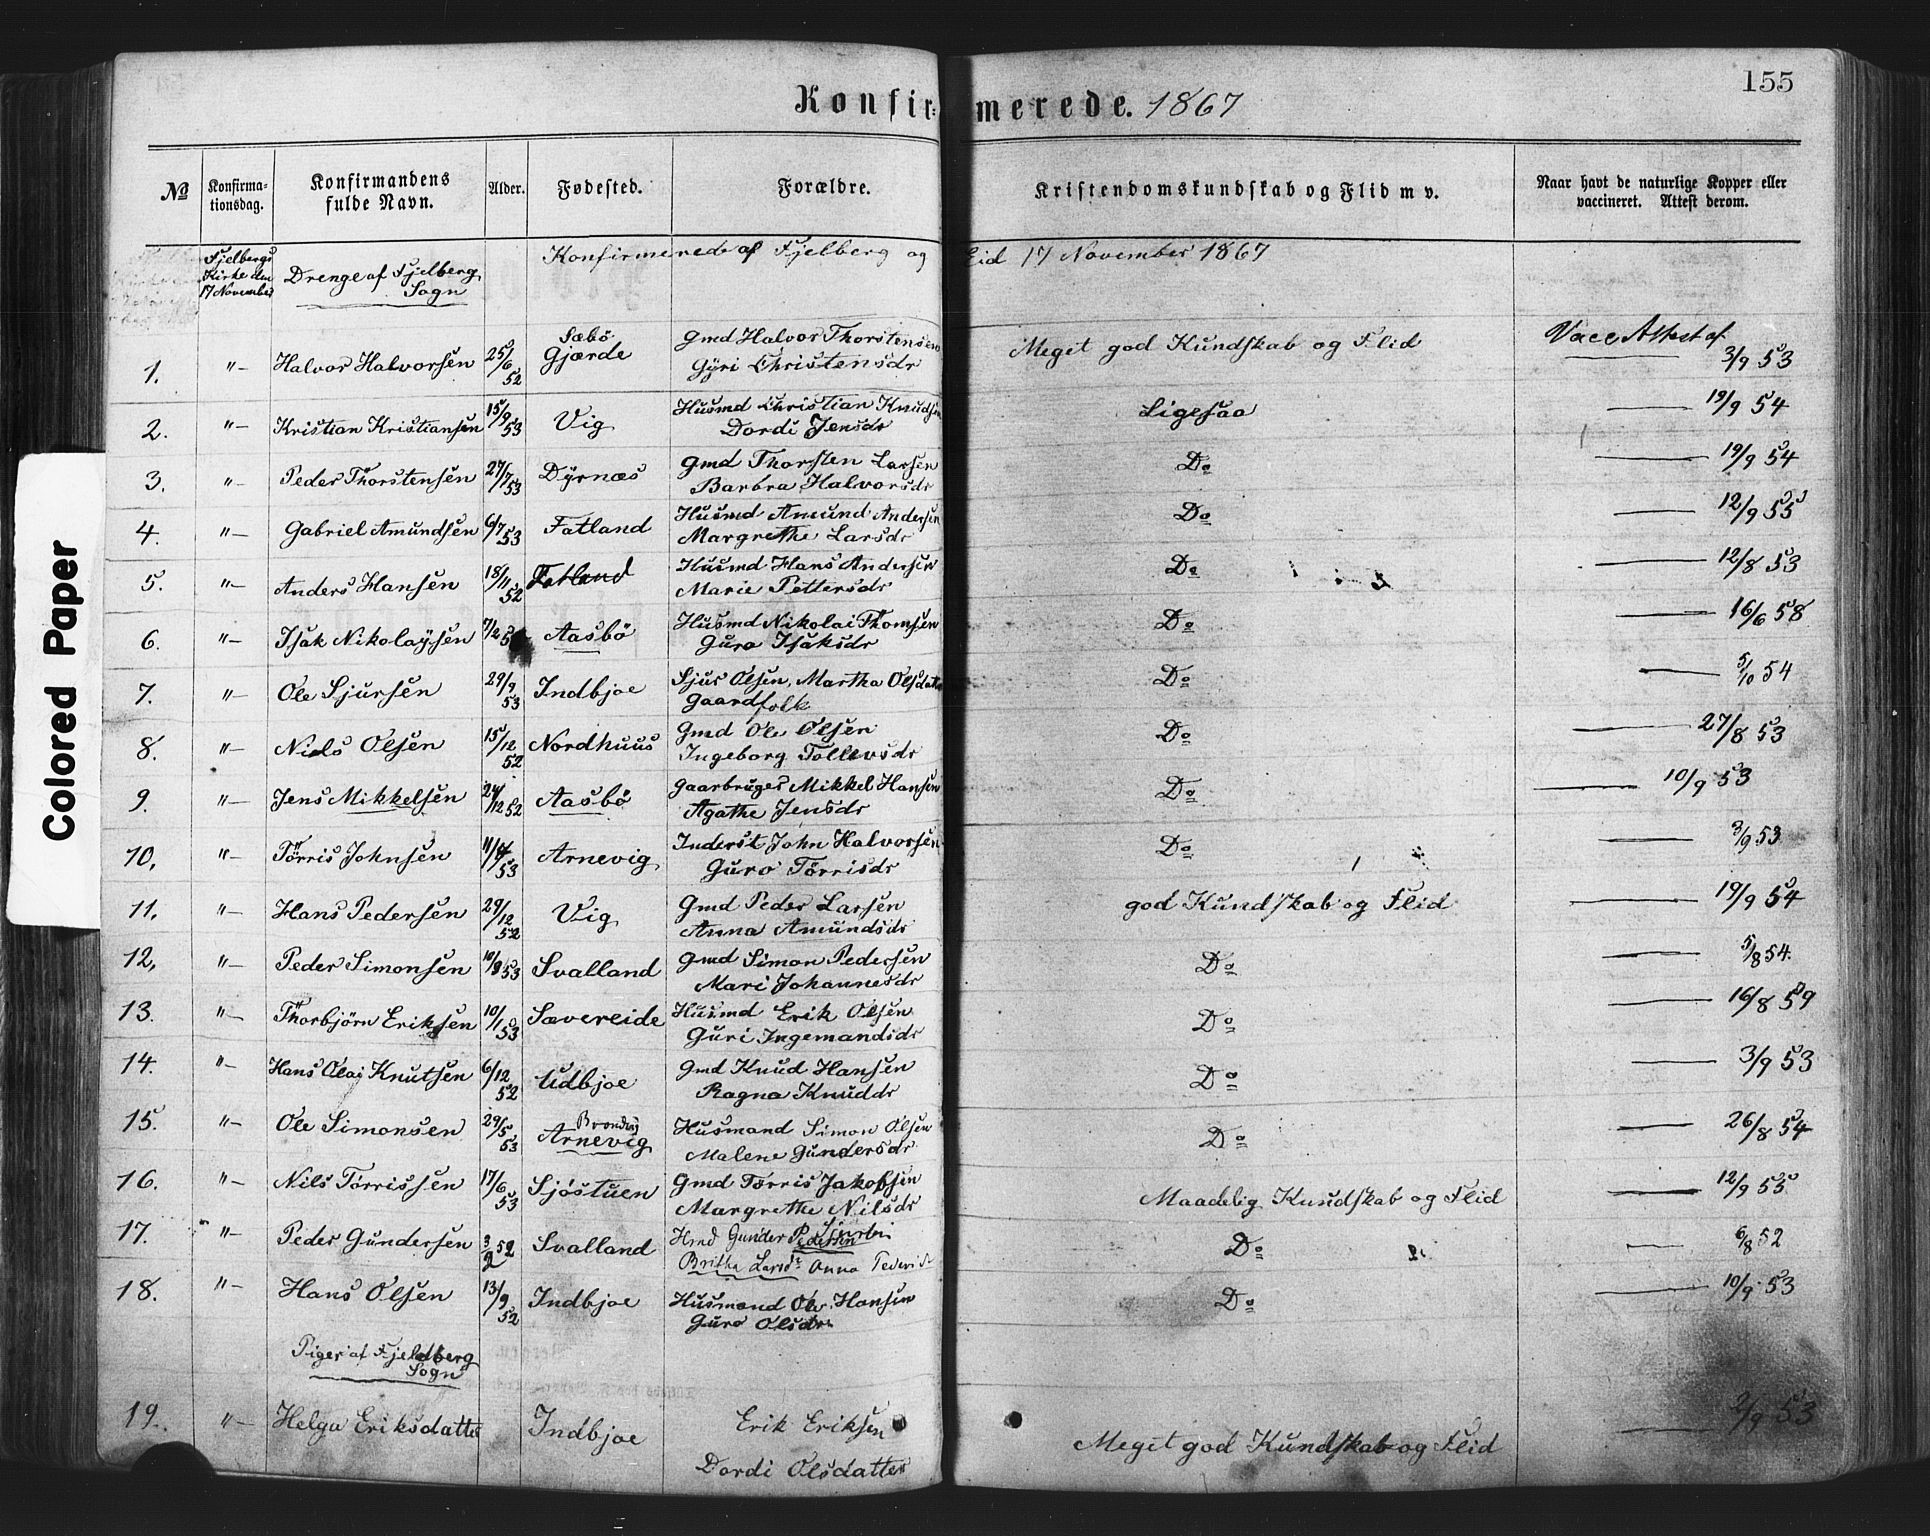 155
Konfirmerede. 1867
No
Konfirma-
tionsdag.
Konfirmandens
fulde Navn.
Alder.
Fødested.
Forældre.
Kristendomskundskab og Flid m v.
Naar havt de naturlige Kopper eller
vaccineret. Attest derom.
Fjelbergs
Kirke den
17 November
Drenge af Fjelberg
Sogn
Konfirmerede af Fjelberg og Eid 17 November 1867
1. "- Halvor Halvorsen 25/6 52 Sæbö Gjærde Gmd Halvor Thorstensen Gÿri Christensdr Meget god Kundskab og Flid Vacc Attest af 3/9 53
2. "- Kristian Kristiansen 15/9 53 Vig Husmd Christian Knudsen Dordi Jensdr Ligesaa — 19/9 54
3. "- Peder Thorstensen 27/7 53 Dÿrnæs Gmd Thorsten Larsen Barbra Halvorsdr Do — 19/9 54
4. "- Gabriel Amundsen 6/7 53 Fatland Husmd Amund Andersen Margrethe Larsdr Do — 12/9 55
5. "- Anders Hansen 18/11 52 Fatland Husmd Hans Andersen Marie Pettersdr Do — 12/8 53
6. "- Isak Nikolaÿsen 7/2 5 Aasbö Husmd Nikolai Thomsen Guro Isaksdr Do — 16/6 58
7. "- Ole Sjursen 29/9 53 Indbjoe Sjur Olsen, Martha Olsdatter Gaardfolk Do — 5/10 54
8. "- Niels Olsen 15/12 52 Nordhuus Gmd Ole Olsen Ingeborg Tollevsdr Do — 27/8 53
9. "- Jens Mikkelsen 24/12 52 Aasbö Gaarbruger Mikkel Hansen Agathe Jensdr Do — 10/9 53
10, "- Törris Johnsen 11/4 53 Arnevig Inderst John Halvorsen Guro Törrisdr Do — 3/9 53
11, "- Hans Pedersen 29/12 52 Vig Gmd Peder Larsen Anna Amundsdr god Kundskab og Flid — 19/9 54
12, "- Peder Simonsen 10/8 53 Svalland Gmd Simon Pedersen Mari Johannesdr Do — 5/8 54.
13. "- Thorbjörn Eriksen 10/1 53 Sævereide Husmd Erik Olsen Guri Ingemandsdr Do — 16/8 59
14. "- Hans Olai Knutsen 6/12 52 Udbjoe Gmd Knud Hansen Ragna Knuddr Do — 3/9 53
15. "- Ole Simonsen 29/5 53 Arnevig Husmand Simon Olsen Malene Gundersdr Do — 26/8 54
16. "- Nils Törrissen 17/6 53 Sjöstuen Gmd Törris Jakobsen Margrethe Nilsdr Maadelig Kundskab og Flid — 12/9 55
17. "- Peder Gundersen 3/2 52 Svalland Hmd Gunder Pedersen Britha Larsdr Anna Do — 6/8 52
18. "- Hans Olsen 13/9 52 Indbjoe Husmand Ole Hansen Guro Olsdr. Do — 10/9 53
Piger af Fjeldberg
Sogn
19. "- Helga Eriksdatter Indbjoe Erik Eriksen Dordi Olsdatter Meget god Kundskab og Flid — 2/9 53
Colored Paper